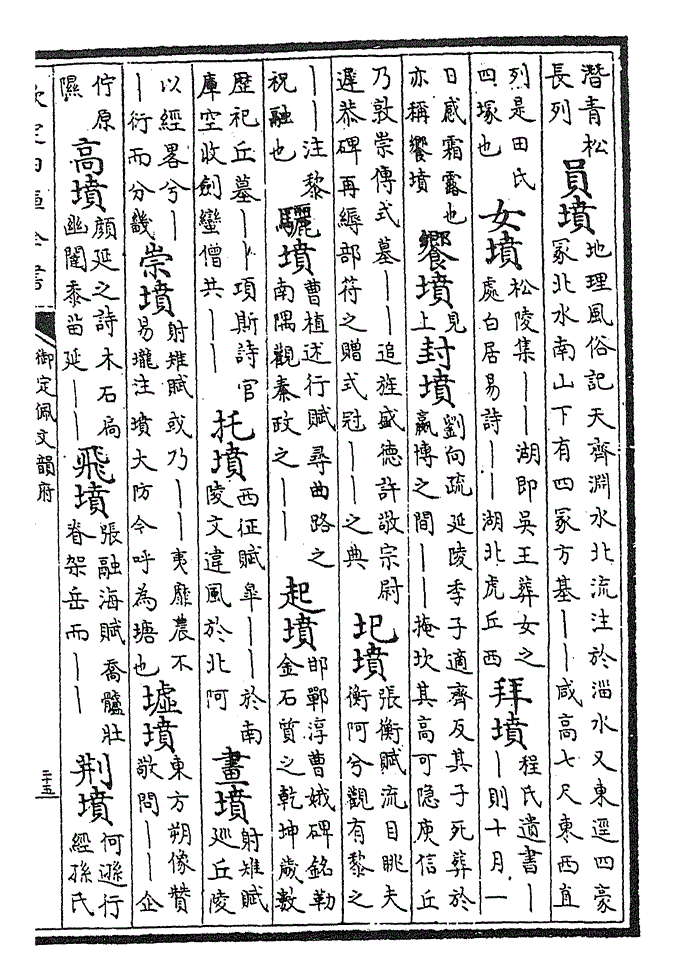 潛青松長列員墳地理風俗記天齊淵水北流注於淄水又東逕四豪冢北水南山下有四冢方基——咸高七尺東西直
列是田氏四塚也女墳松陵集——湖即吳王葬女之處白居易詩——湖北虎丘西拜墳程氏遺書——則十月一
日感霜露也亦稱饗墳饗墳見上封墳劉向疏延陵季子適齊反其子死葬於嬴博之間——掩坎其高可隐庾信丘
乃敦崇傳式墓——追旌盛德許敬宗尉遲恭碑再縟部符之贈式冠——之典圯墳張衡賦流目眺夫衡阿兮觀有黎之
——注黎祝融也驪墳曹植述行賦尋曲路之南隅觀秦政之——起墳邯鄲淳曹娥碑銘勒金石質之乾坤歲數
歴祀丘墓——項斯詩官庫空收劍蠻僧共——托墳西征賦皐——於南陵文違風於北阿畫墳射雉賦廵丘陵
以經畧兮——衍而分畿崇墳射雉賦或乃——夷靡農不易壠注墳大防今呼為塘也墟墳東方朔像賛敬問——企
佇原隰高墳顔延之詩木石扃幽闥黍苗延——飛墳張融海賦喬髗壮眷架岳而——荆墳何遜行經孫氏
欽定四庫全書
御定佩文韻府